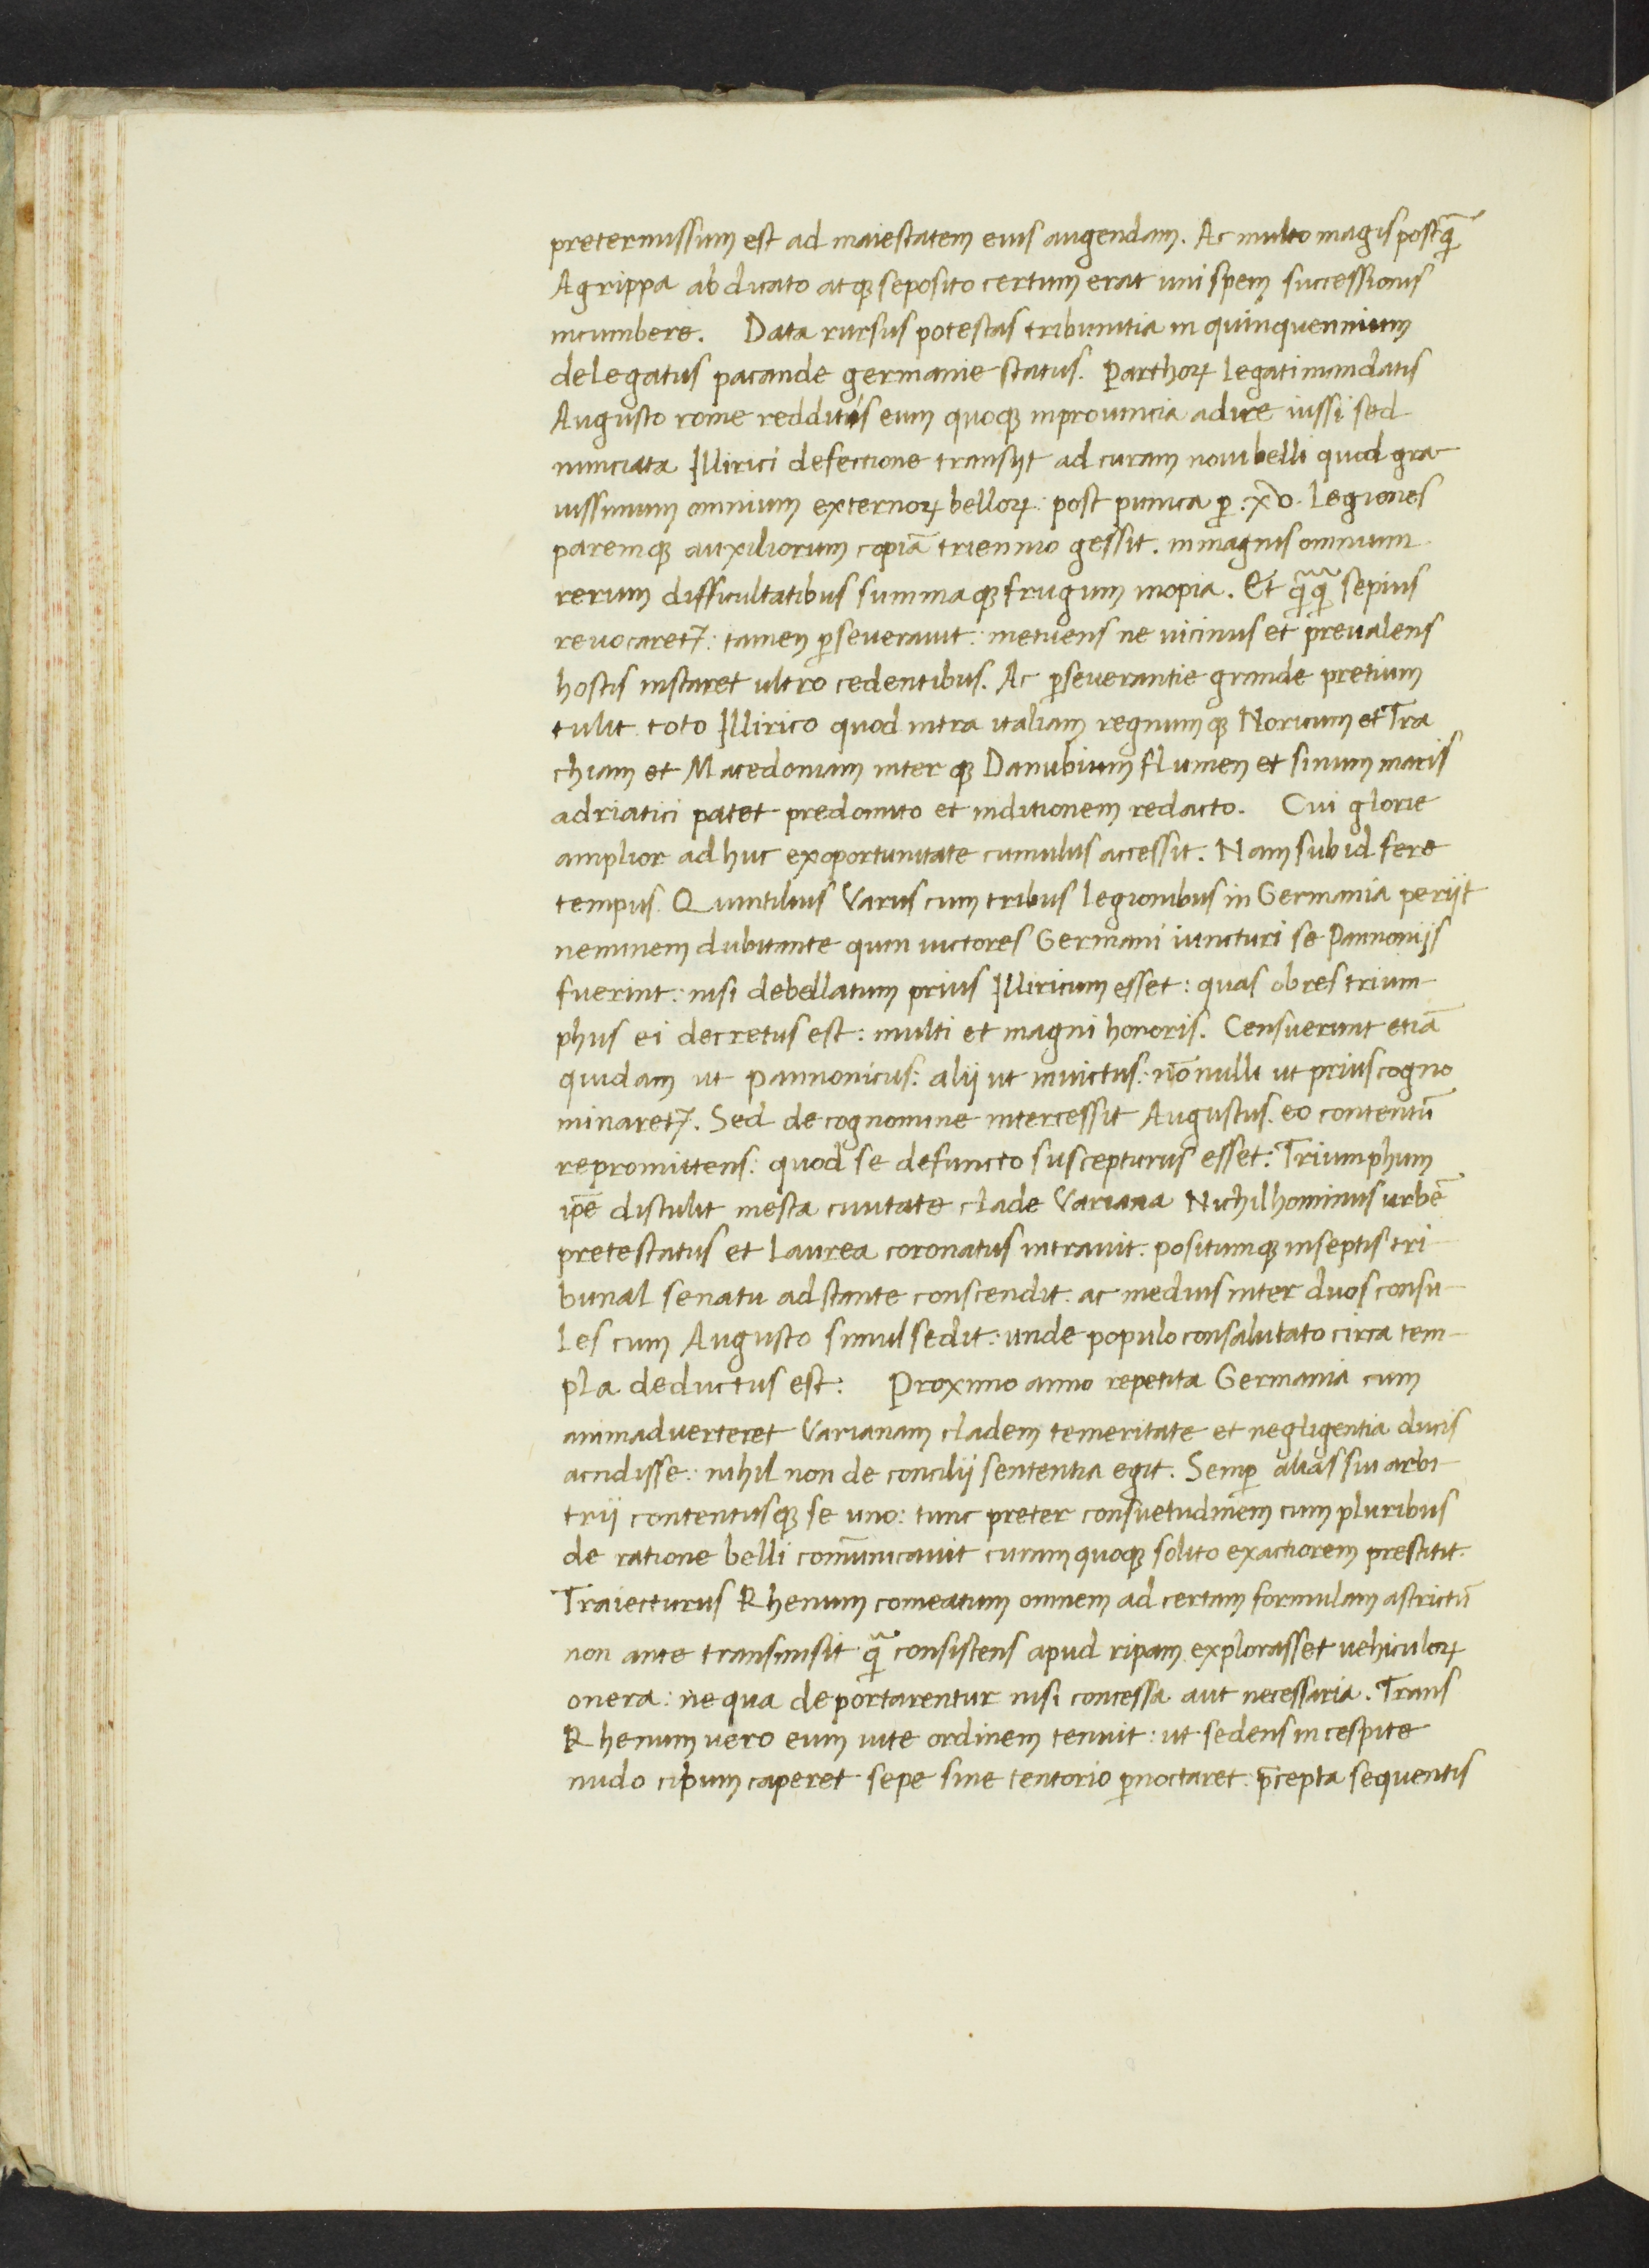 pretermissum est ad maiestatem eius augendam. Ac multo magis postq̃
Agrippa abdicato atqꝫ seposito certum erat uni spem successionis
incumbere. Data rursus potestas tribunitia in quinquennium
delegatus pacande germanie status. Parthoꝝ legati mandatis
Augusto rome redditis eum quoqꝫ in prouincia adire iussi sed
nunciata Illirici defectione transijt ad curam noui belli quod gra
uissimum omnium externoꝝ belloꝝ: post punica ꝑ .xv. legiones
paremqꝫ auxiliorum copiã triennio gessit. in magnis omnium
rerum difficultatibus summaqꝫ frugum inopia. Et q̃q̃ sepius
reuocaretꝛ: tamen ꝑseuerauit: metuens ne uicinus et preualens
hostis instaret ultro cedentibus. Ac ꝑseuerantie grande pretium
tulit toto Illirico quod intra italiam regnumqꝫ Noricum et Tra
chiam et Macedoniam interqꝫ Danubium flumen et sinum maris
adriatici patet predomito et in ditionem redacto. Cui glorie
amplior adhuc ex oportunitate cumulus accessit. Nam sub id fere
tempus Quintilius Varus cum tribus legionibus in Germania perijt
neminem dubitante quin uictores Germani iuncturi se Pannonijs
fuerint: nisi debellatum prius Illiricum esset: quas ob res trium-
phus ei decretus est: multi et magni honoris. Censuerunt etiã
quidam ut pannonicus: alij ut inuictus: nõnulli ut prius cogno
minaretꝛ. Sed de cognomine intercessit Augustus. eo contentũ
repromittens: quod se defuncto suscepturus esset: Triumphum
ip̃e distulit mesta ciuitate clade Variana Nichilhominus urbẽ
pretestatus et laurea coronatus intrauit: positumqꝫ in septis tri
bunal senatu adstante conscendit. ac medius inter duos consu-
les cum Augusto simul sedit: unde populo consalutato circa tem-
pla deductus est: Proximo anno repetita Germania cum
animaduerteret Varianam cladem temeritate et negligentia ducis
accidisse: nihil non de concilij sententia egit. Semꝑ alias sui arbi
trij contentusqꝫ se uno: tunc preter consuetudinem cum pluribus
de ratione belli com̃unicauit curam quoqꝫ solito exactiorem prestitit.
Traiecturus Rhenum comeatum omnem ad certam formulam astrictũ
non ante transmisit q̃ consistens apud ripam explorasset uehiculoꝝ
onera: ne qua deportarentur nisi concessa aut necessaria. Trans
Rhenum uero eum uite ordinem tenuit: ut sedens in cespite
nudo cibum caperet sepe sine tentorio ꝑnoctaret: p̃cepta sequentis